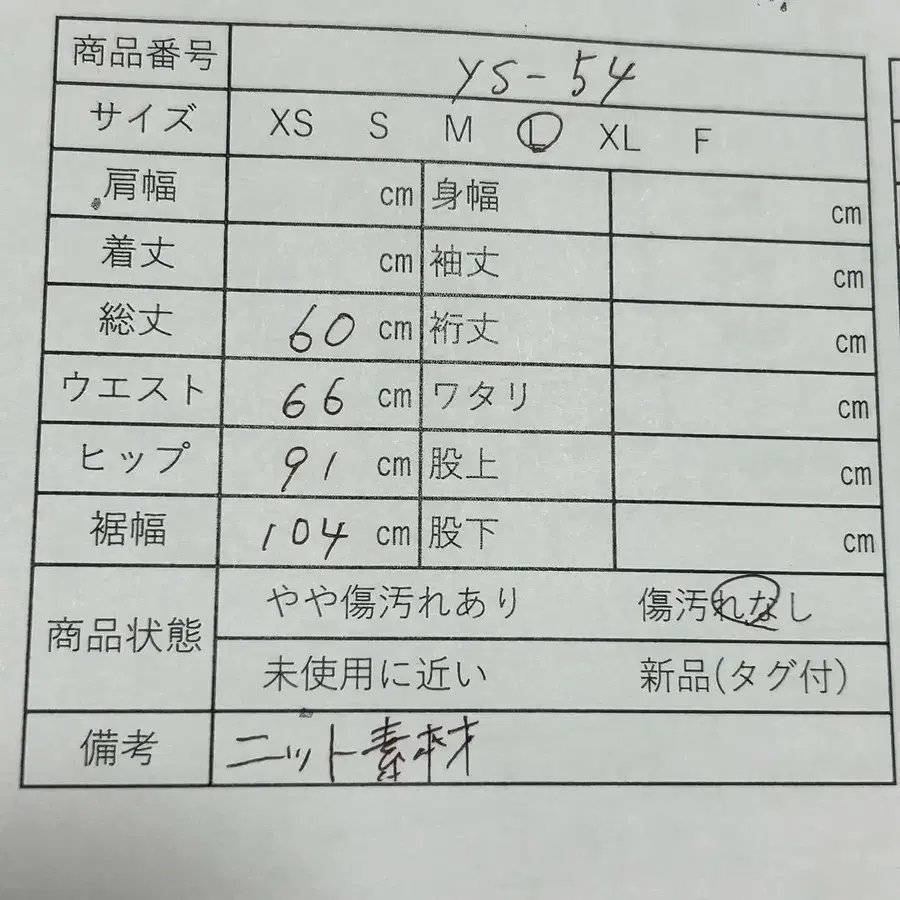 商品番号 YS-54
サイズ XS S M L XL F
肩幅 cm 身幅 cm
着丈 cm 袖丈 cm
総丈 60 cm 裄丈 cm
ウエスト 66 cm ワタリ cm
ヒップ 91 cm 股上 cm
裾幅 104 cm 股下 cm
商品状態 やや傷汚れあり 傷汚れなし
未使用に近い 新品(タグ付)
備考 ニット素材